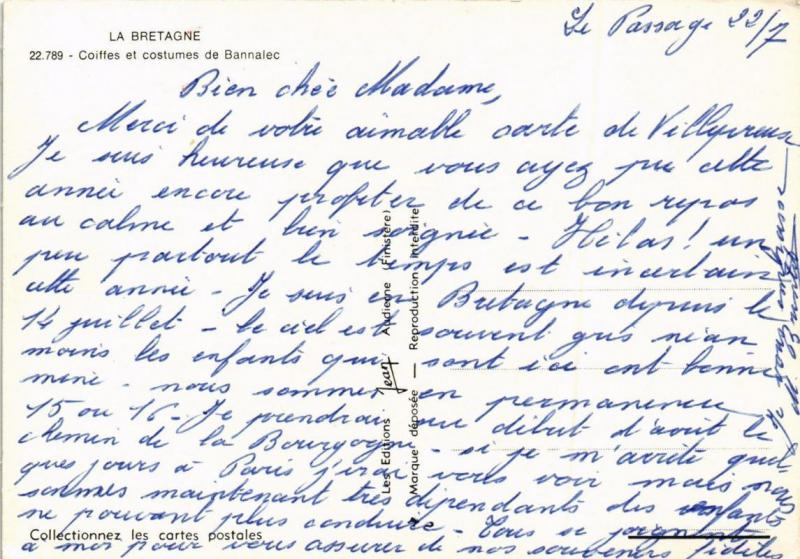 LA BRETAGNE
22.789 - Coiffes et costumes de Bannalec
Le Passage 22/7
Bien chée Madame,
Merci de votre aimable carte de Villeyreuse
Je suis heureuse que vous ayez pu cette
année encore profiter de ce bon repos
au calme et bien soignée - Hélas! un
peu partout le temps est incertain
cette année - Je suis en Bretagne depuis le
14 juillet - le ciel est souvent gris néan
moins les enfants qui sont ici ont bonne
mine - nous sommes en permanence
15 ou 16 - Je prendrai au début d'août le
chemin de la Bourgogne - si je m'arrête quel
ques jours à Paris j'irai vous voir mais nous
sommes maintenant très dépendants des enfants
ne pouvant plus conduire - Tous se joignent
à moi pour vous assurer de nos souvenirs fidèles
Je vous embrasse
Les Editions Jean Audierne (Finistère)
Marque déposée — Reproduction Interdite
Collectionnez les cartes postales